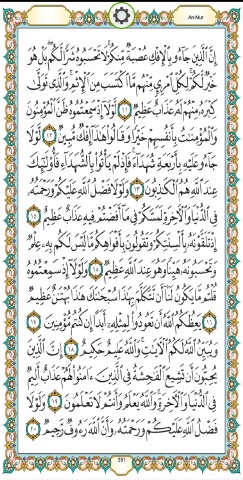 An-Nur
إِنَّ ٱلَّذِينَ جَآءُو بِٱلۡإِفۡكِ عُصۡبَةٞ مِّنكُمۡۚ لَا تَحۡسَبُوهُ شَرّٗا لَّكُمۖ بَلۡ هُوَ
خَيۡرٞ لَّكُمۡۚ لِكُلِّ ٱمۡرِيٕٖ مِّنۡهُم مَّا ٱكۡتَسَبَ مِنَ ٱلۡإِثۡمِۚ وَٱلَّذِي تَوَلَّىٰ
كِبۡرَهُۥ مِنۡهُمۡ لَهُۥ عَذَابٌ عَظِيمٞ ١١ لَّوۡلَآ إِذۡ سَمِعۡتُمُوهُ ظَنَّ ٱلۡمُؤۡمِنُونَ
وَٱلۡمُؤۡمِنَٰتُ بِأَنفُسِهِمۡ خَيۡرٗا وَقَالُواْ هَٰذَآ إِفۡكٞ مُّبِينٞ ١٢ لَّوۡلَا
جَآءُو عَلَيۡهِ بِأَرۡبَعَةِ شُهَدَآءَۚ فَإِذۡ لَمۡ يَأۡتُواْ بِٱلشُّهَدَآءِ فَأُوْلَٰٓئِكَ
عِندَ ٱللَّهِ هُمُ ٱلۡكَٰذِبُونَ ١٣ وَلَوۡلَا فَضۡلُ ٱللَّهِ عَلَيۡكُمۡ وَرَحۡمَتُهُۥ
فِي ٱلدُّنۡيَا وَٱلۡأٓخِرَةِ لَمَسَّكُمۡ فِي مَآ أَفَضۡتُمۡ فِيهِ عَذَابٌ عَظِيمٌ ١٤
إِذۡ تَلَقَّوۡنَهُۥ بِأَلۡسِنَتِكُمۡ وَتَقُولُونَ بِأَفۡوَاهِكُم مَّا لَيۡسَ لَكُم بِهِۦ عِلۡمٞ
وَتَحۡسَبُونَهُۥ هَيِّنٗا وَهُوَ عِندَ ٱللَّهِ عَظِيمٞ ١٥ وَلَوۡلَآ إِذۡ سَمِعۡتُمُوهُ
قُلۡتُم مَّا يَكُونُ لَنَآ أَن نَّتَكَلَّمَ بِهَٰذَا سُبۡحَٰنَكَ هَٰذَا بُهۡتَٰنٌ عَظِيمٞ
١٦ يَعِظُكُمُ ٱللَّهُ أَن تَعُودُواْ لِمِثۡلِهِۦٓ أَبَدًا إِن كُنتُم مُّؤۡمِنِينَ ١٧
وَيُبَيِّنُ ٱللَّهُ لَكُمُ ٱلۡأٓيَٰتِۚ وَٱللَّهُ عَلِيمٌ حَكِيمٌ ١٨ إِنَّ ٱلَّذِينَ
يُحِبُّونَ أَن تَشِيعَ ٱلۡفَٰحِشَةُ فِي ٱلَّذِينَ ءَامَنُواْ لَهُمۡ عَذَابٌ أَلِيمٞ
فِي ٱلدُّنۡيَا وَٱلۡأٓخِرَةِۚ وَٱللَّهُ يَعۡلَمُ وَأَنتُمۡ لَا تَعۡلَمُونَ ١٩ وَلَوۡلَا
فَضۡلُ ٱللَّهِ عَلَيۡكُمۡ وَرَحۡمَتُهُۥ وَأَنَّ ٱللَّهَ رَءُوفٞ رَّحِيمٞ ٢٠
351